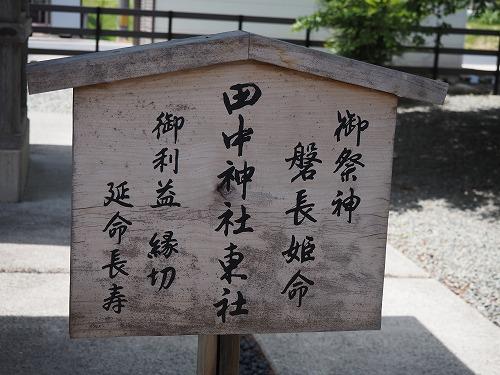 御祭神
磐長姫命
田中神社東社
御利益 縁切
延命長寿